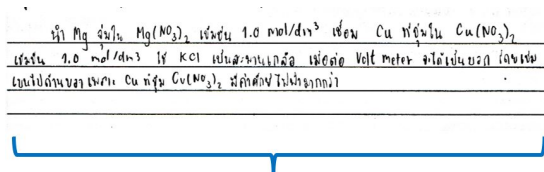 นำ Mg จุ่มใน Mg(NO₃)₂ เข้มข้น 1.0 mol/dm³ เชื่อม Cu ที่จุ่มใน Cu(NO₃)₂
เข้มข้น 1.0 mol/dm³ ใช้ KCl เป็นสะพานเกลือ เมื่อต่อ Volt meter จะได้เป็นบวก โดยเข็ม
เบนไปด้านขวา เพราะ Cu ที่จุ่ม Cu(NO₃)₂ มีค่าศักย์ไฟฟ้ามากกว่า